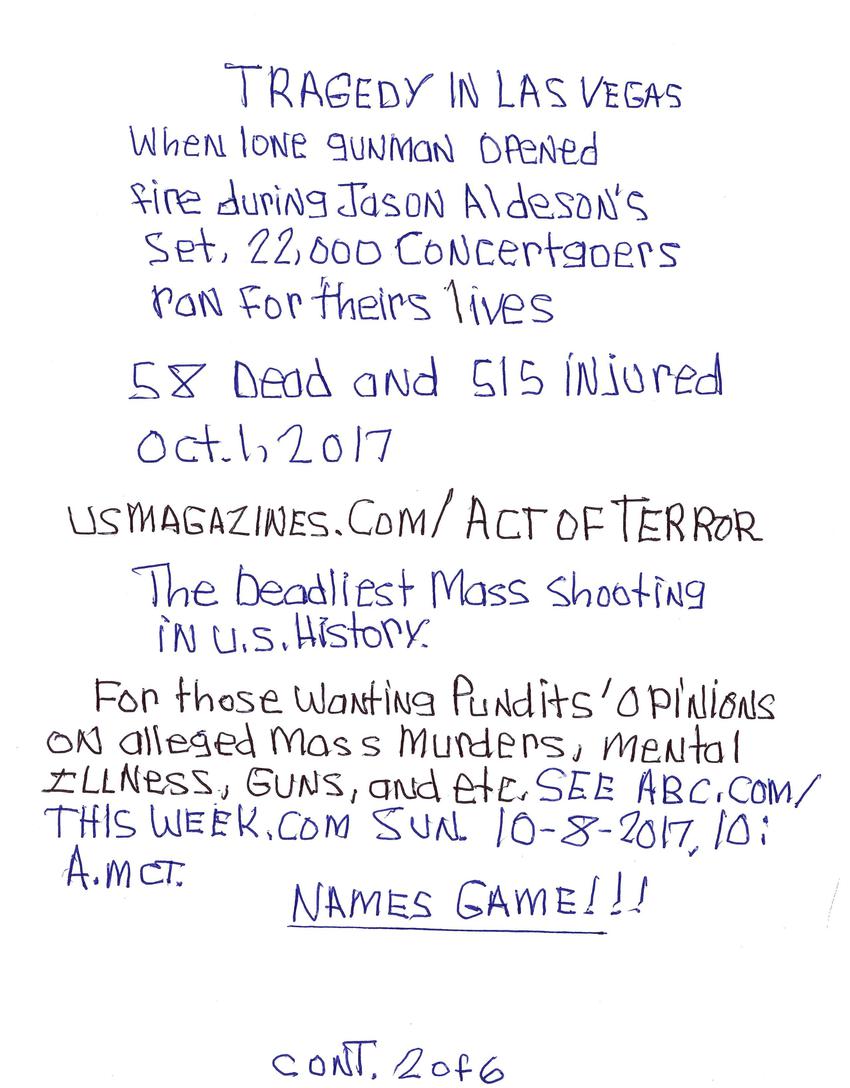 TRAGEDY IN LAS VEGAS
When lone gunman opened
fire during Jason Aldeson's
Set, 22,000 Concertgoers
ran for theirs lives
58 Dead and 515 injured
Oct.1, 2017
USMAGAZINES.COM/ACT OF TERROR
The Deadliest Mass shooting
in U.S. History.
For those wanting Pundits' Opinions
on alleged Mass Murders, mental
ILLNess, GUNS, and etc. SEE ABC.COM/
THIS WEEK.COM SUN. 10-8-2017, 10:
A.M CT.
NAMES GAME!!!
CONT. 2 of 6